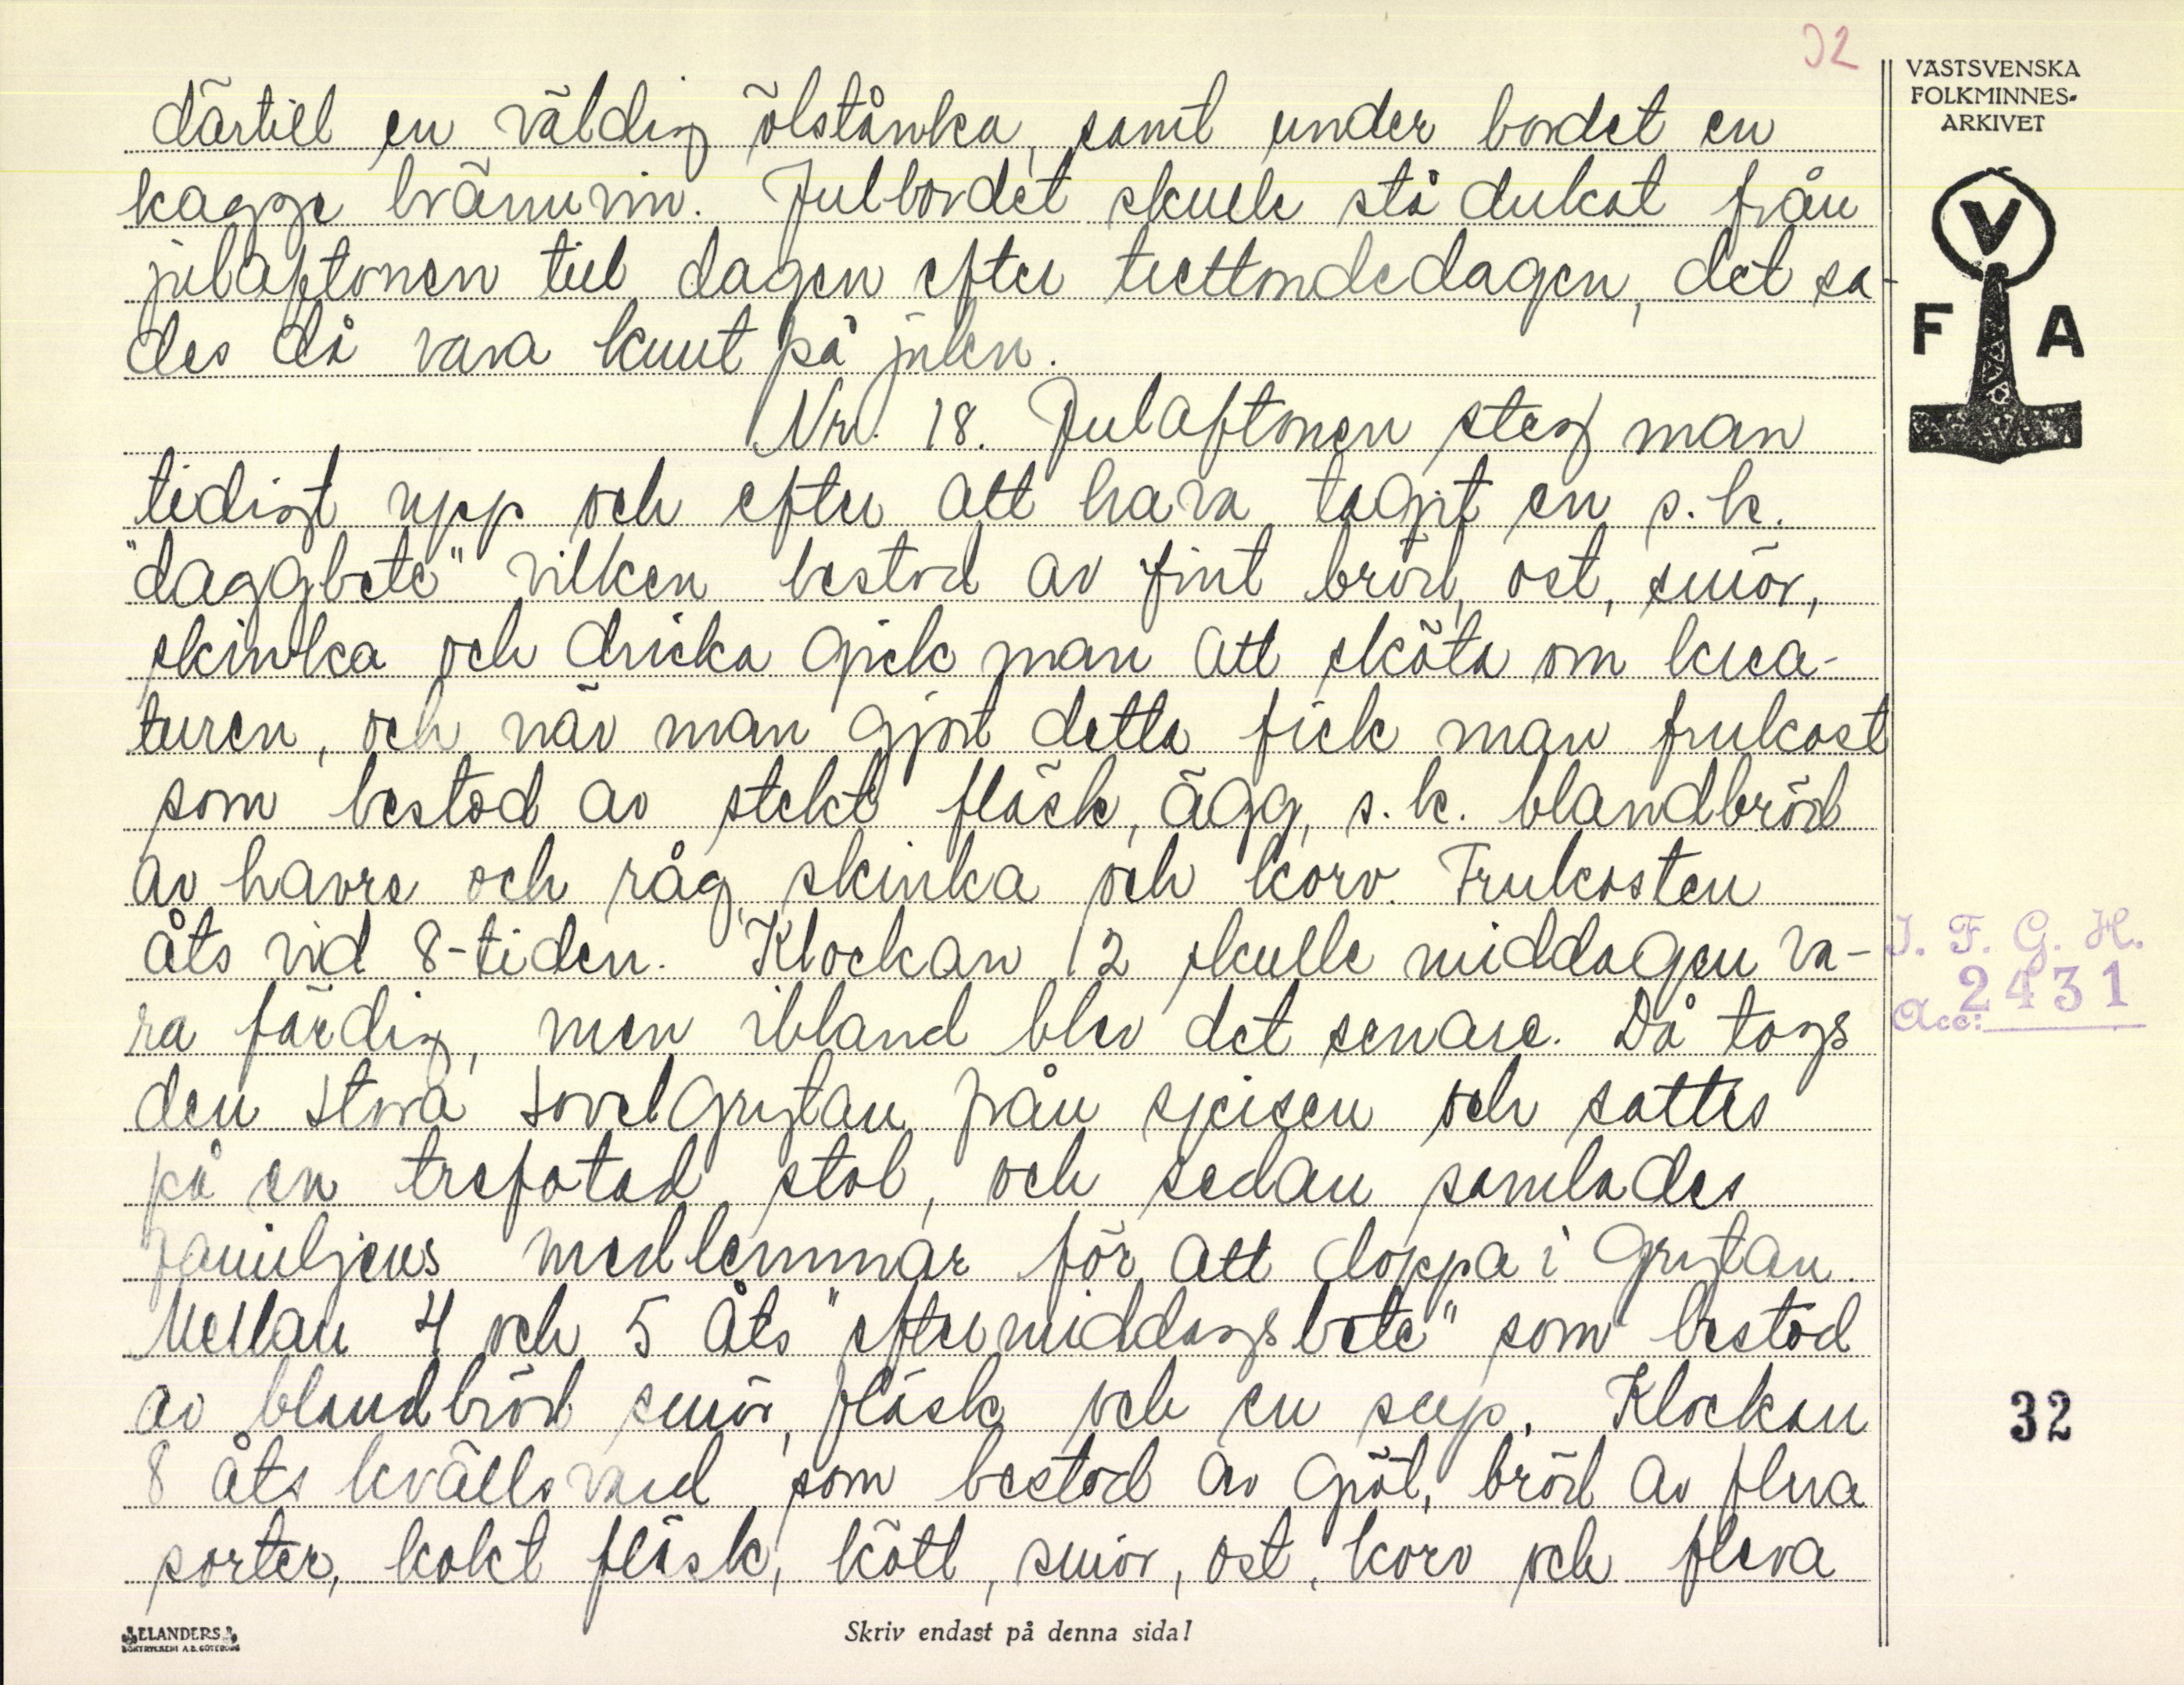 32
VÄSTSVENSKA
FOLKMINNES-
ARKIVET
V
F A
därtill en väldig ölstånka, samt under bordet en
kagge brännvin. Julbordet skulle stå dukat från
julaftonen till dagen efter trettondedagen, det sa-
des då vara knut på julen.
Nr. 18. Julaftonen steg man
tidigt upp och efter att hava tagit en s.k.
"daggbete" vilken bestod av fint bröd, ost, smör,
skinka och dricka gick man att sköta om krea-
turen, och när man gjort detta fick man frukost
som bestod av stekt fläsk, ägg, s.k. blandbröd
av havre och råg, skinka och korv. Frukosten
åts vid 8-tiden. Klockan 12 skulle middagen va-
ra färdig, men ibland blev det senare. Då togs
den stora sovelgrytan från spisen och sattes
på en trefotad stol, och sedan samlades
familjens medlemmar för att doppa i grytan.
Mellan 4 och 5 åts "eftermiddagsbete" som bestod
av blandbröd smör, fläsk och en sup. Klockan
8 åts kvällsvard som bestod av gröt, bröd av flera
sorter, kokt fläsk, kött, smör, ost, korv och flera
I. F. G. H.
Acc: 2431
32
ELANDERS
BOKTRYCKERI A.B. GÖTEBORG
Skriv endast på denna sida!